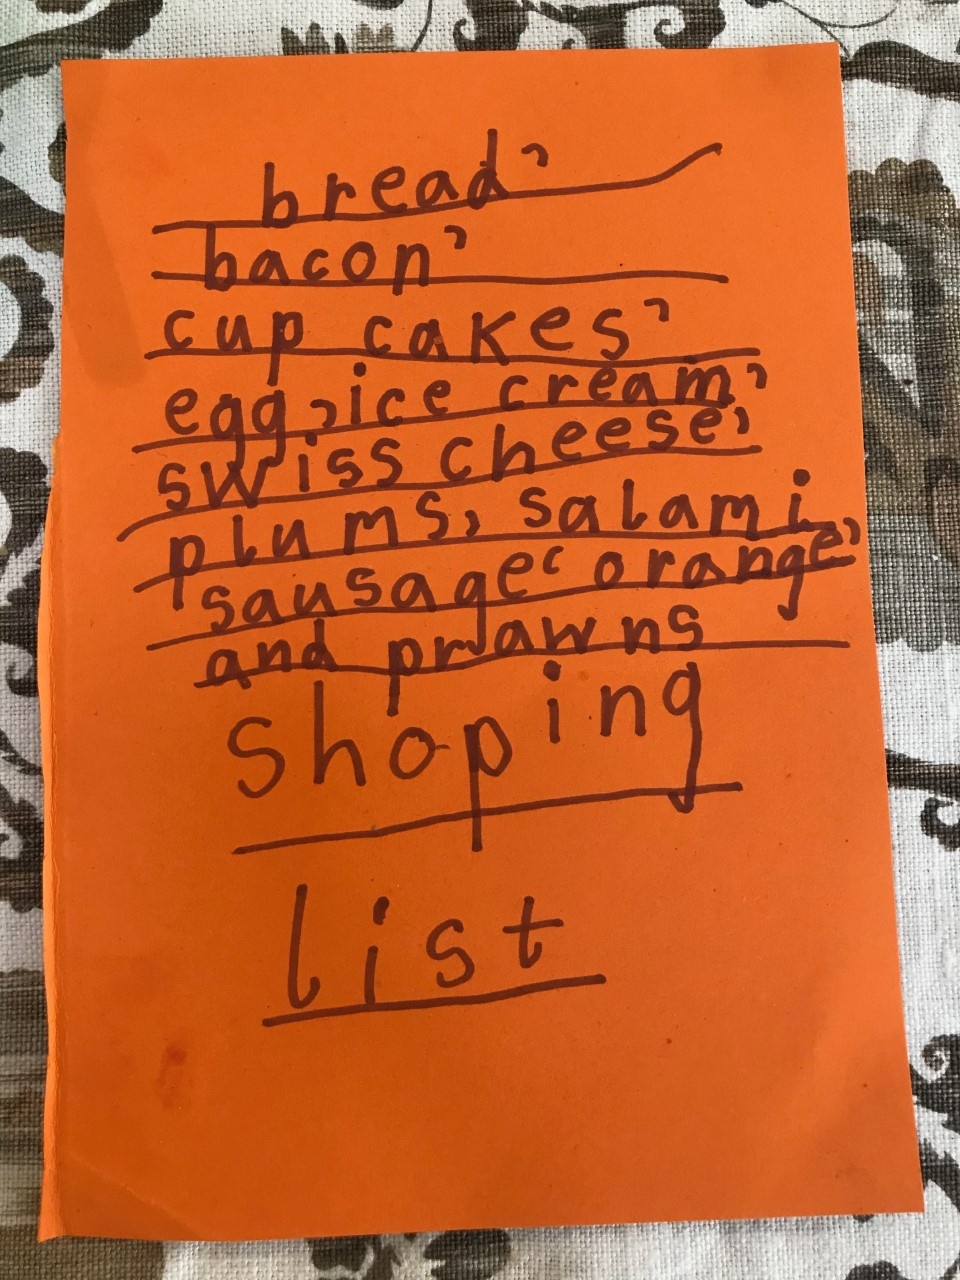 bread,
bacon,
cup cakes,
egg, ice cream,
swiss cheese,
plums, salami
sausage, orange,
and prawns
shoping
list